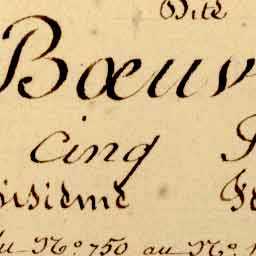 Dite
Bœuv
cinq
oisième
du Nº 750 au Nº